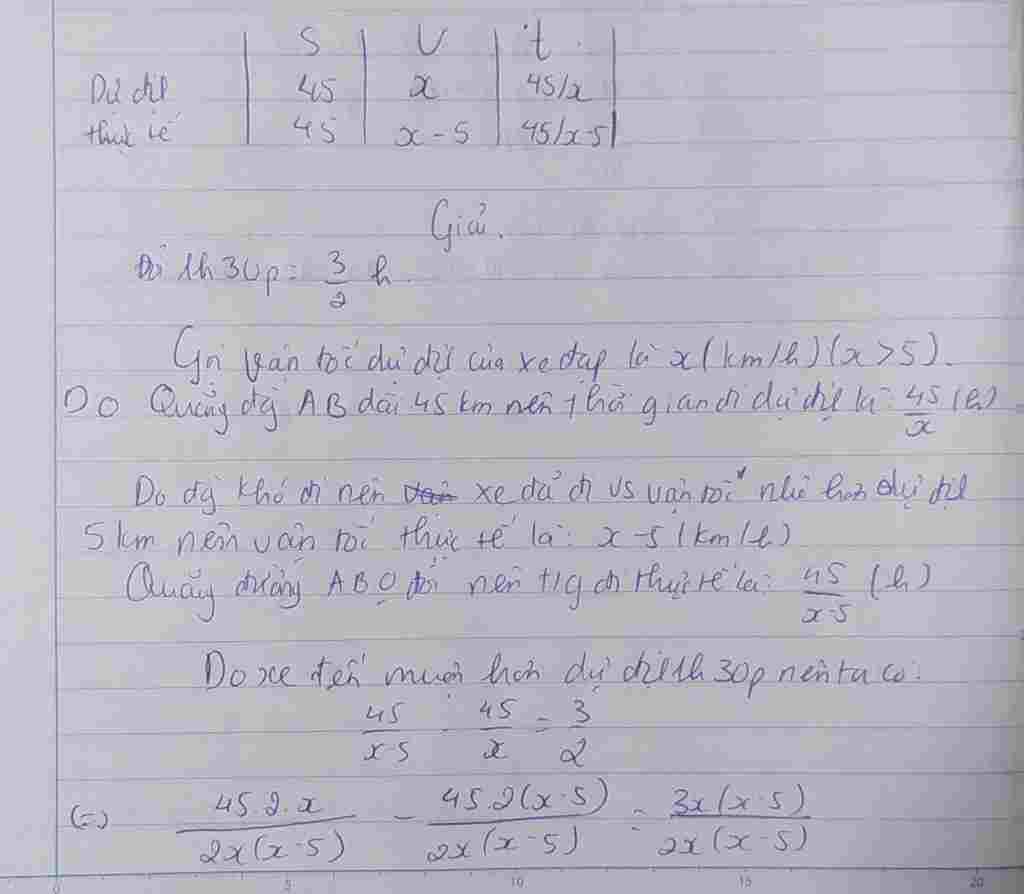 S | V | t
Dự địh | 45 | x | 45/x
thực tế | 45 | x - 5 | 45/x-5
Giải.
Đổi 1h30p = 3/2 h.
Gọi vận tốc dự địh của xe đạp là x (km/h) (x > 5).
Do Quãng đg AB dài 45 km nên thời gian đi dự địh là: 45/x (h)
Do đg khó đi nên xe đã đi vs vận tốc nhỏ hơn dự địh
5 km nên vận tốc thực tế là: x - 5 (km/h)
Quãng đường AB 0 đổi nên t/g đi thực tế là: 45/x-5 (h)
Do xe đến muộn hơn dự địh 1h 30p nên ta có:
45/x-5 - 45/x = 3/2
(=) 45.2.x/2x(x-5) - 45.2(x-5)/2x(x-5) = 3x(x-5)/2x(x-5)
5 10 15 20